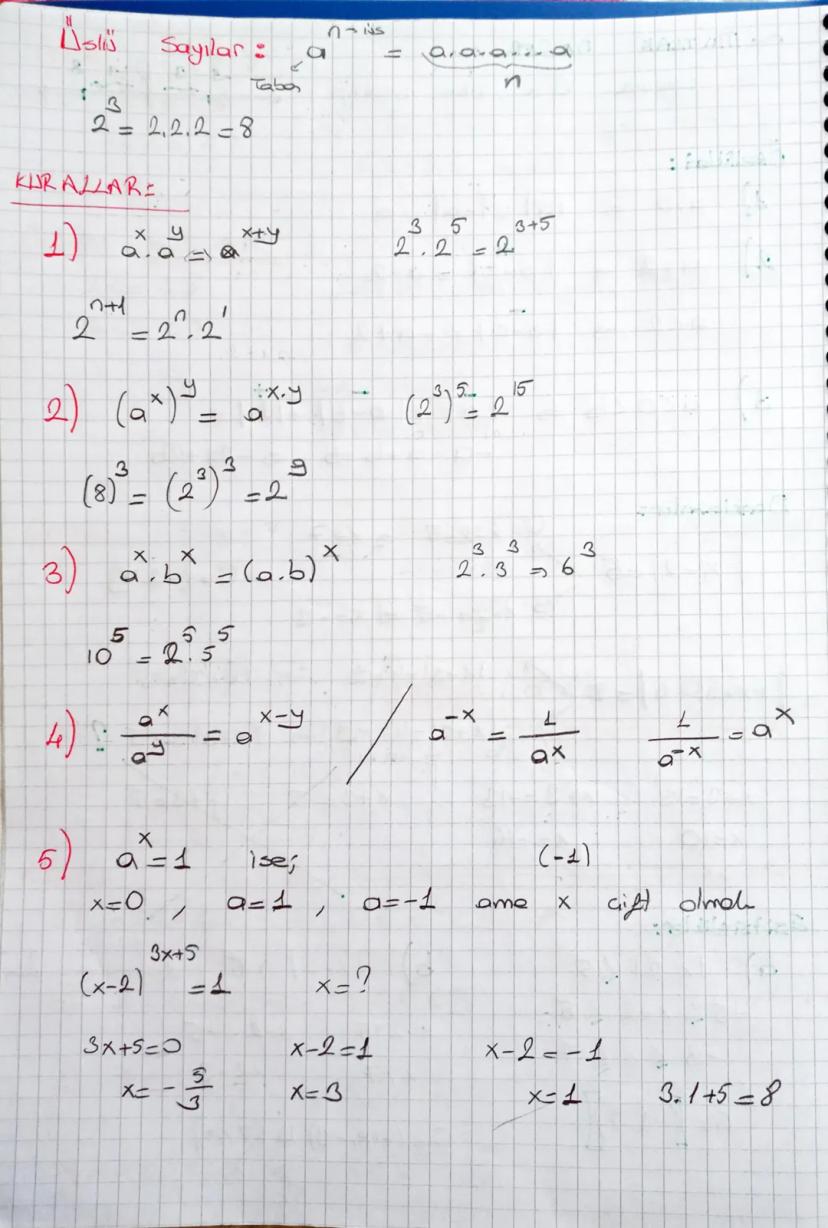 Üslü Sayılar: a^(n→üs) = a.a.a...a
Taban n
2^3 = 2.2.2 = 8
KURALLAR:
1) a^x.a^y => a^(x+y) 2^3.2^5 = 2^(3+5)
2^(n+1) = 2^n.2^1
2) (a^x)^y = a^(x.y) (2^3)^5 = 2^15
(8)^3 = (2^3)^3 = 2^9
3) a^x.b^x = (a.b)^x 2^3.3^3 => 6^3
10^5 = 2^5.5^5
4) a^x/a^y = a^(x-y) / a^(-x) = 1/a^x 1/a^(-x) = a^x
5) a^x = 1 ise; (-1)
x=0, a=1, a=-1 ama x çift olmalı
(x-2)^(3x+5) = 1 x=?
3x+5=0 x-2=1 x-2=-1
x=-5/3 x=3 x=1 3.1+5=8